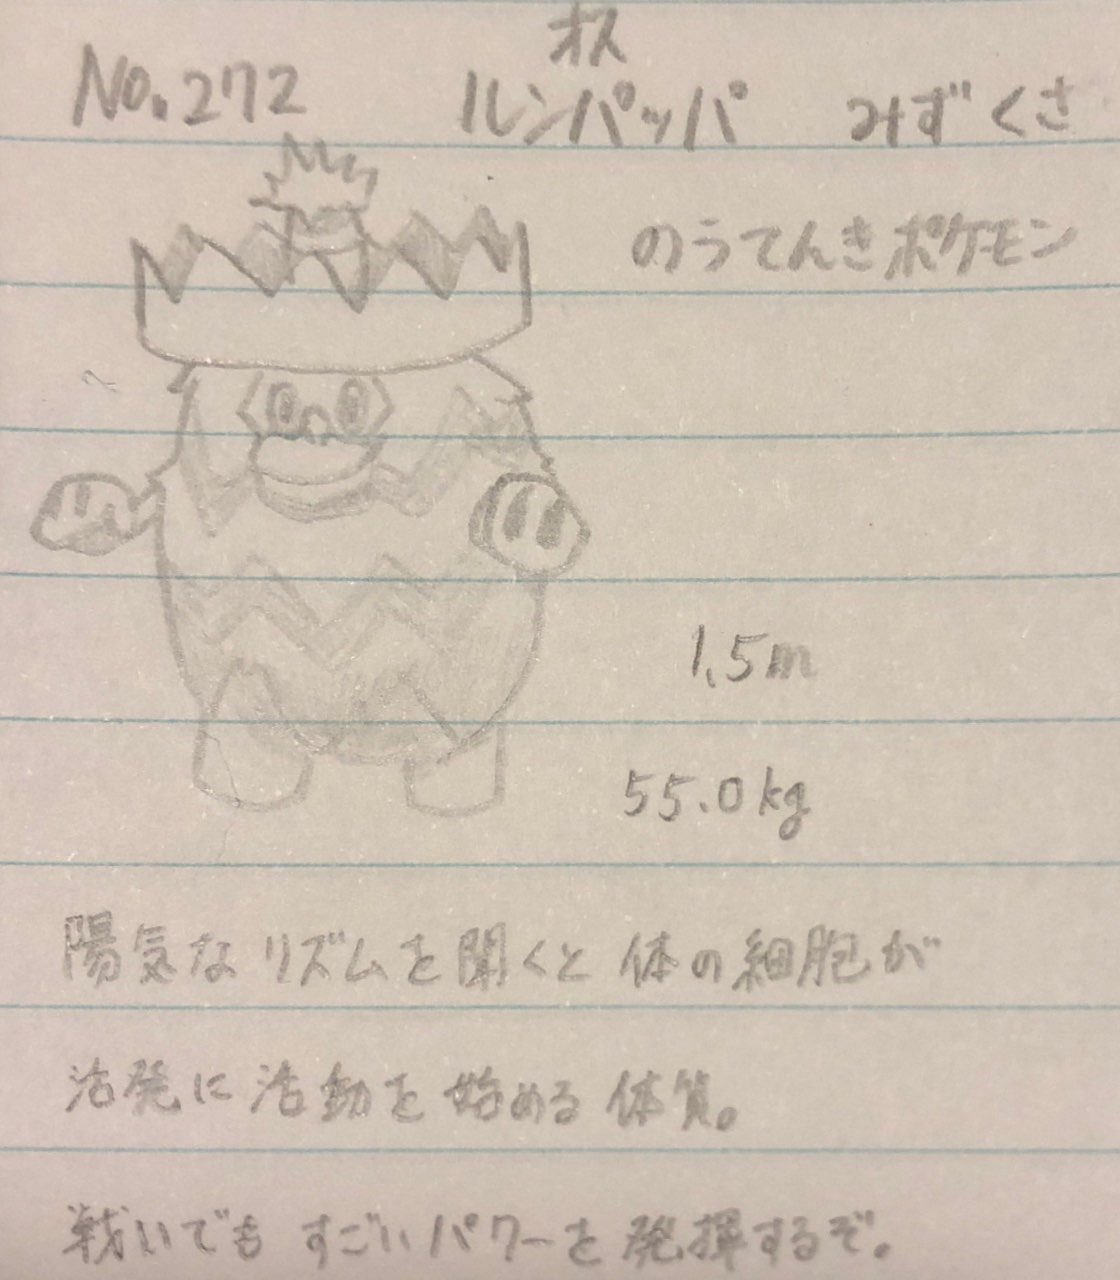 オス
No.272 ルンパッパ みずくさ
のうてんきポケモン
1.5m
55.0kg
陽気なリズムを聞くと体の細胞が
活発に活動を始める体質。
戦いでもすごいパワーを発揮するぞ。